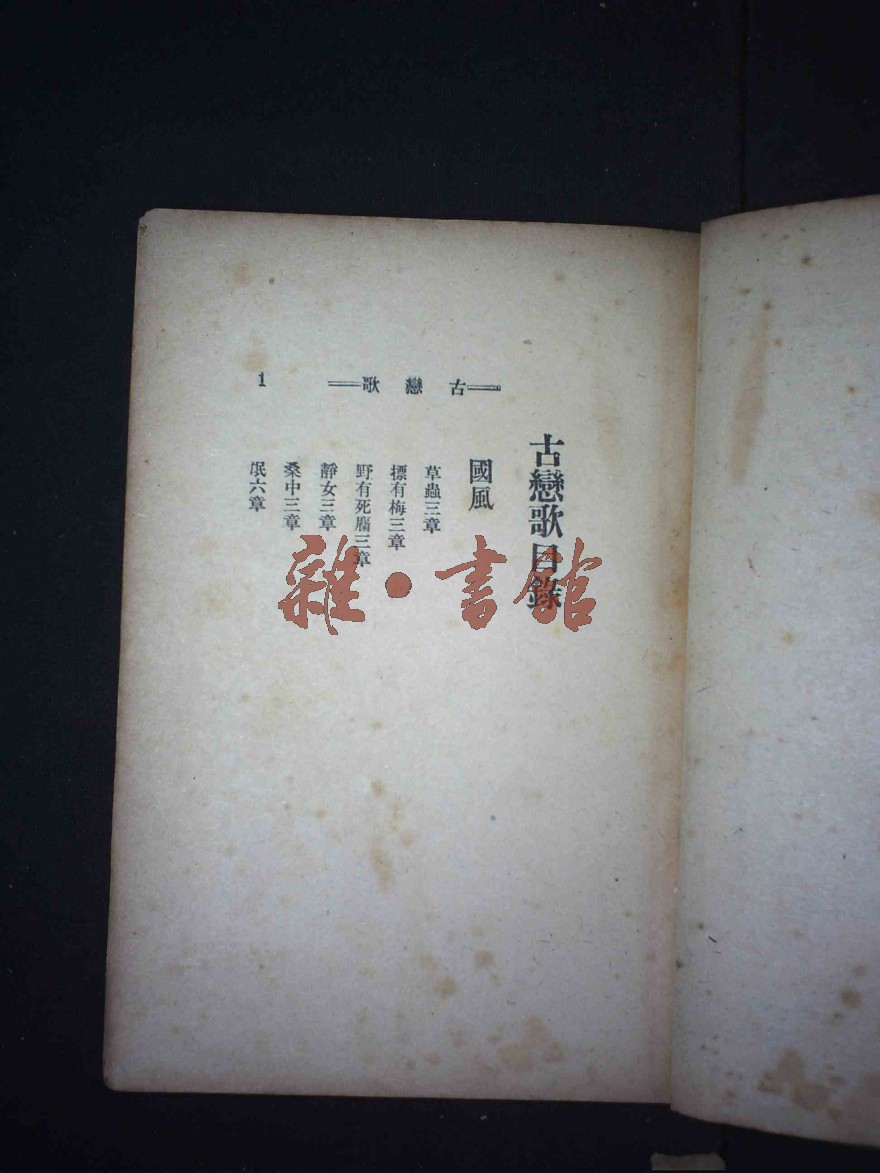 古戀歌
1
古戀歌目錄
國風
草蟲三章
摽有梅三章
野有死麕三章
靜女三章
桑中三章
氓六章
雜·書館